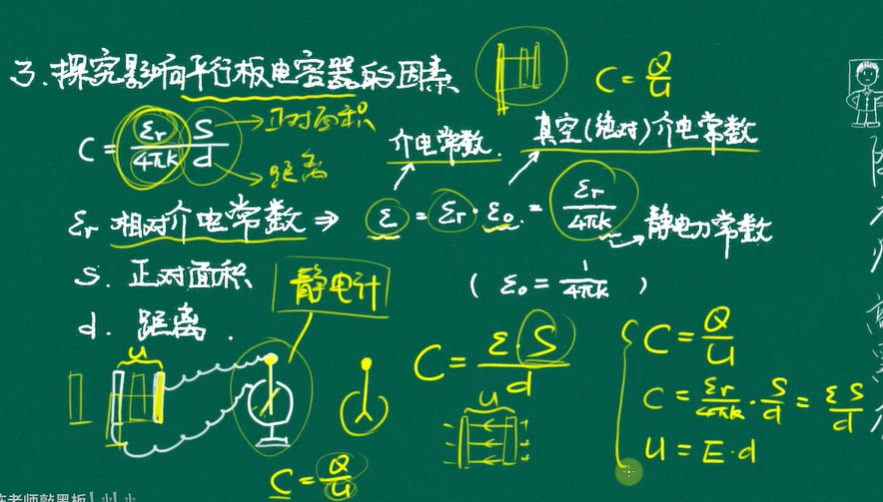 3.探究影响平行板电容器的因素
C=Q/U
C=εr/4πk S/d
正对面积
距离
介电常数.
真空(绝对)介电常数
εr 相对介电常数⇒ ε=εr·ε0.=εr/4πk
静电力常数
S. 正对面积
静电计
(ε0=1/4πk)
d. 距离.
U
C=Q/U
C=ε·S/d
U
C=Q/U
C=εr/4πk·S/d=εS/d
U=E·d
老师敲黑板